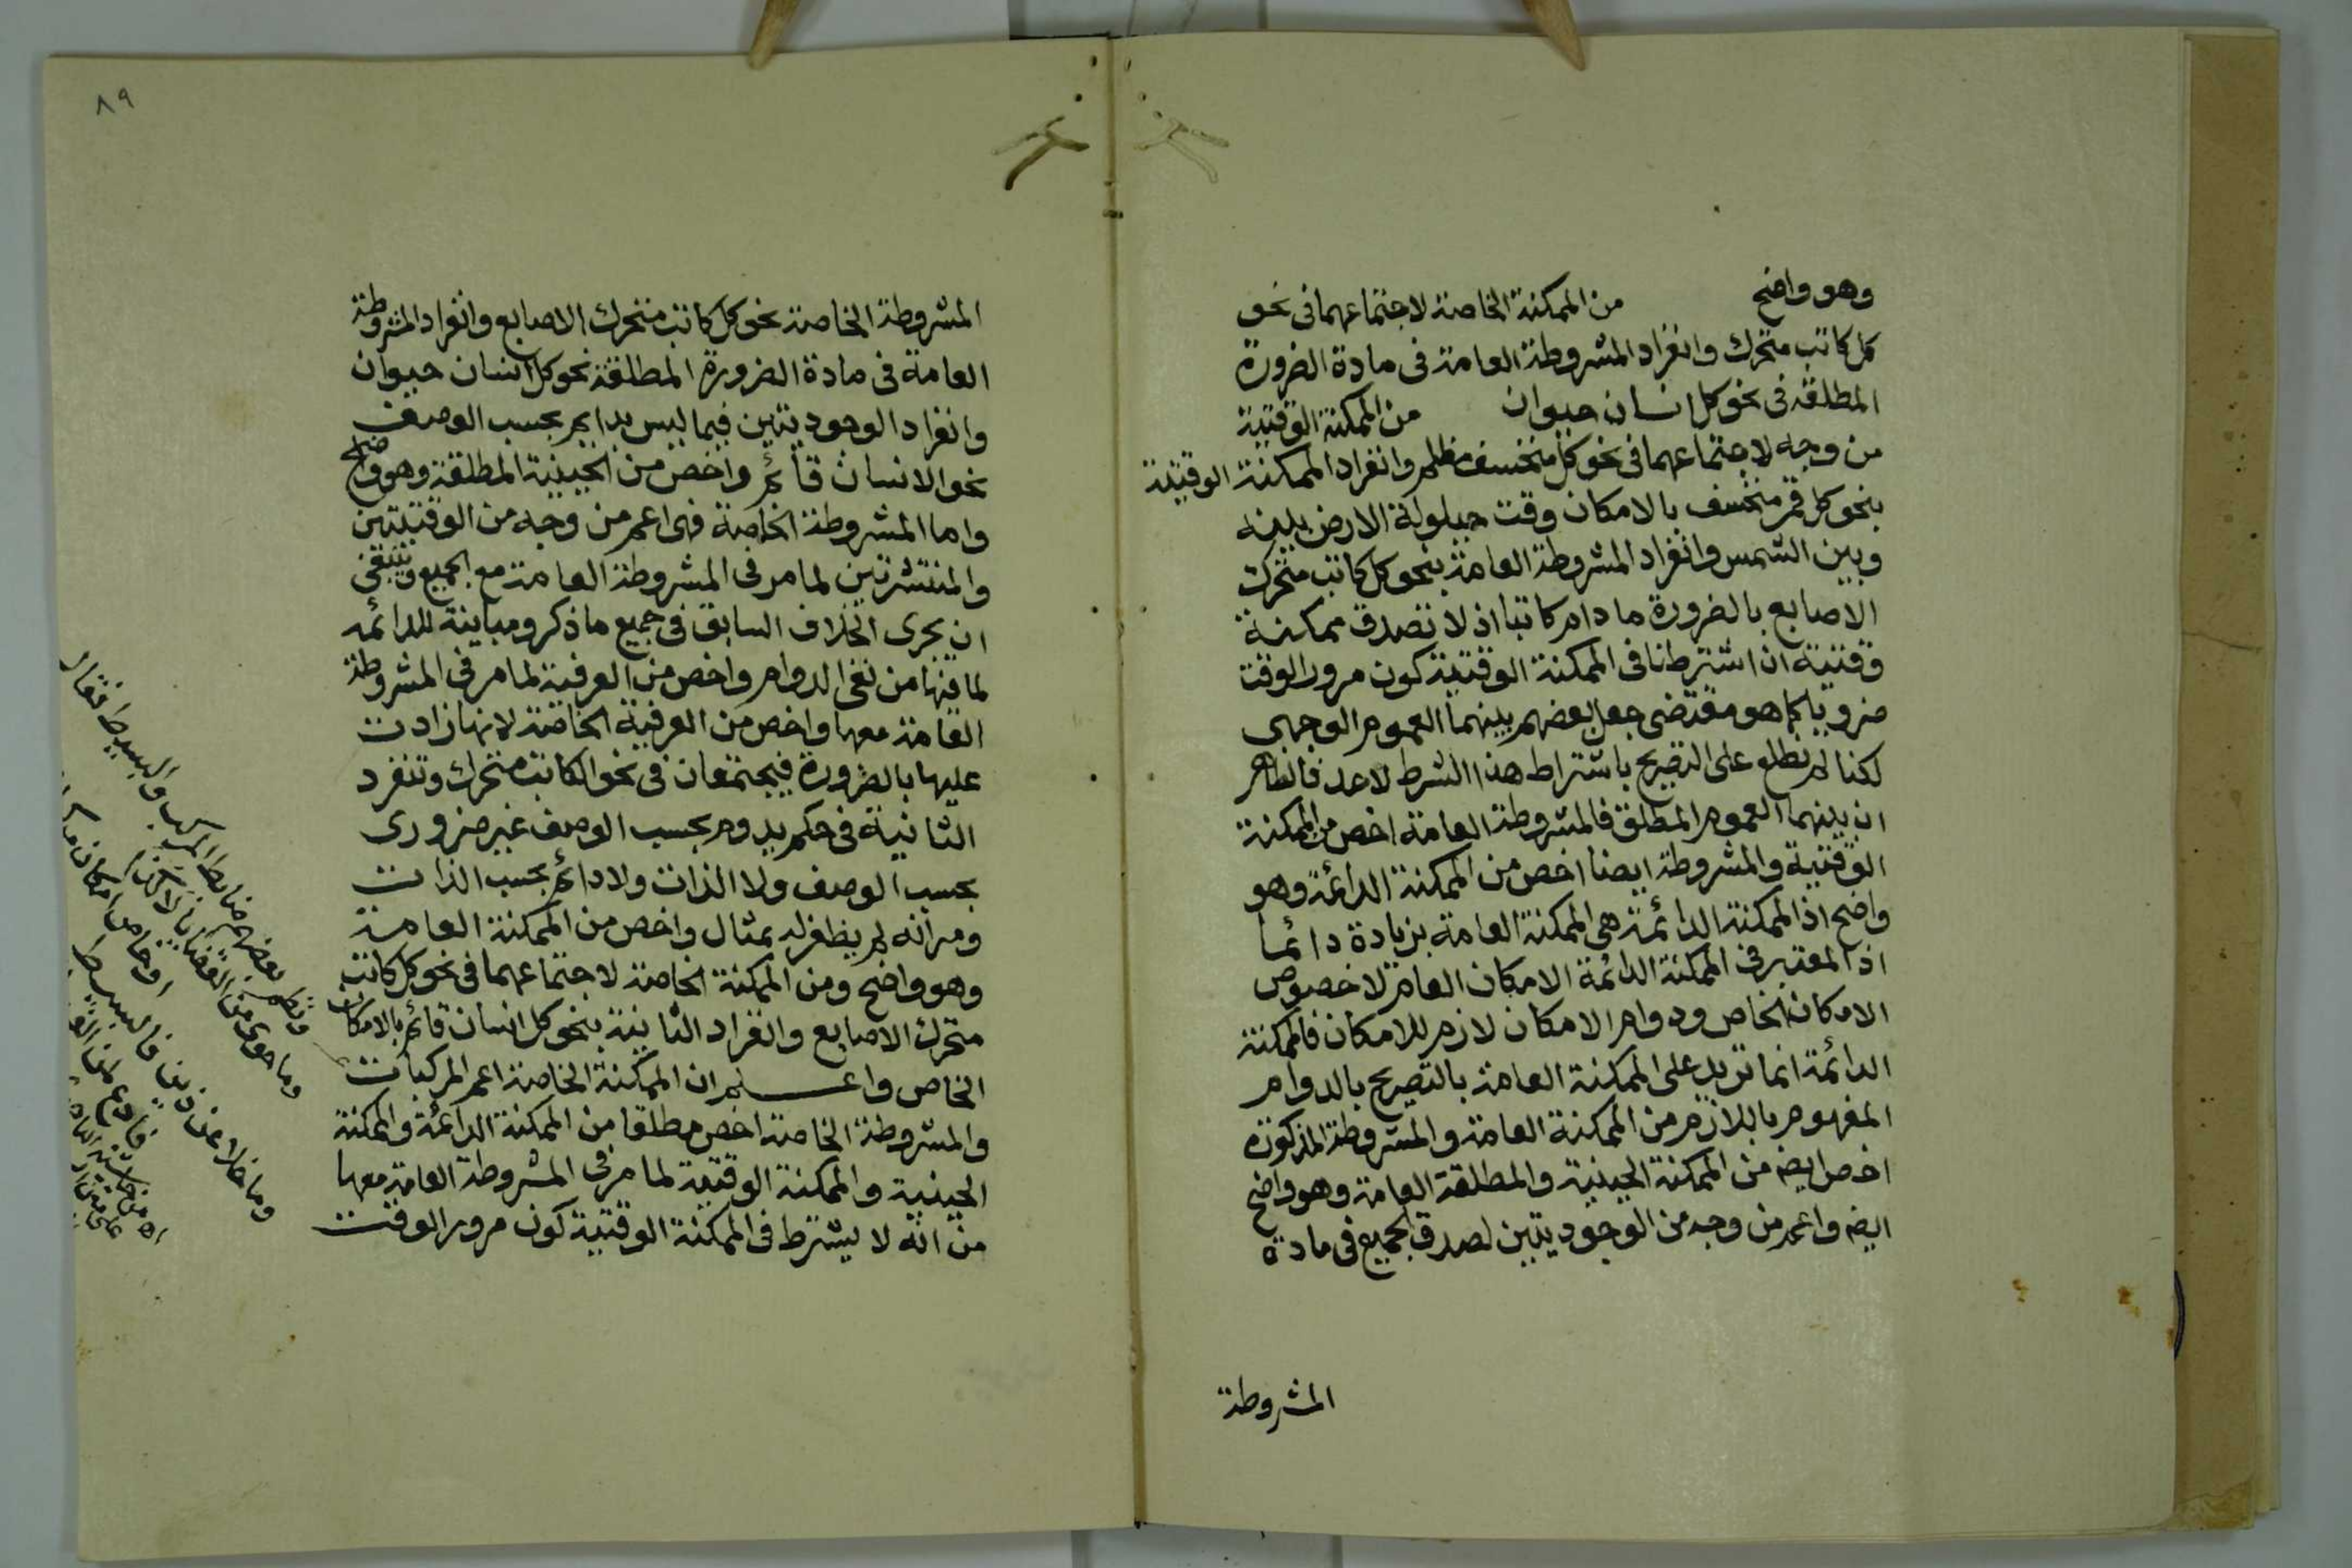 وهو واضح من الممكنة الخاصة لاجتماعهما فى نحو
كل كاتب متحرك وانفراد المشروطة العامة فى مادة الضرورة
المطلقة فى نحو كل انسان حيوان من الممكنة الوقتية
من وجه لاجتماعهما فى نحو كل منخسف مظلم وانفراد الممكنة الوقتية
بنحو كل قمر منخسف بالامكان وقت حيلولة الارض بينه
وبين الشمس وانفراد المشروطة العامة بنحو كل كاتب متحرك
الاصابع بالضرورة ما دام كاتبا اذ لا تصدق ممكنة
وقتية ان اشترطنا فى الممكنة الوقتية كون مرور الوقت
ضروريا كما هو مقتضى جعل بعضهم بينهما العموم الوجهى
لكنا لم نطلع على التصريح باشتراط هذا الشرط لاحد فالظاهر
ان بينهما العموم المطلق فالمشروطة العامة اخص من الممكنة
الوقتية والمشروطة ايضا اخص من الممكنة الدائمة وهو
واضح اذ الممكنة الدائمة هى الممكنة العامة بزيادة دائما
اذ المعتبر فى الممكنة الدائمة الامكان العام لا خصوص
الامكان الخاص ودوام الامكان لازم للامكان فالممكنة
الدائمة انما تزيد على الممكنة العامة بالتصريح بالدوام
المفهوم باللازم من الممكنة العامة والمشروطة المذكورة
اخص ايضه من الممكنة الحينية والمطلقة العامة وهو واضح
ايضه واعم من وجه من الوجوديتين لصدق الجميع فى مادة
المشروطة
٨٩
المشروطة الخاصة نحو كل كاتب متحرك الاصابع وانفراد المشروطة
العامة فى مادة الضرورة المطلقة نحو كل انسان حيوان
وانفراد الوجوديتين فيما ليس بدايم بحسب الوصف
نحو الانسان قائم واخص من الحينية المطلقة وهو واضح
واما المشروطة الخاصة فهى اعم من وجه من الوقتيتين
والمنتشرتين لما مر فى المشروطة العامة مع الجميع وينبغى
ان يجرى الخلاف السابق فى جميع ما ذكر ومباينة للدائمه
لما فيها من نفى الدوام واخص من العرفية لما مر فى المشروطة
العامة معها واخص من العرفية الخاصة لانها زادت
عليها بالضرورة فيجتمعان فى نحو الكاتب متحرك وتنفرد
الثانية فى حكم يدوم بحسب الوصف غير ضرورى
بحسب الوصف ولا الذات ولا دائم بحسب الذات
ومر انه لم يظفر له بمثال واخص من الممكنة العامة
وهو واضح ومن الممكنة الخاصة لاجتماعهما فى نحو كل كاتب
متحرك الاصابع وانفراد الثانية بنحو كل انسان قائم بالامكان
الخاص واعلم ان الممكنة الخاصة اعم المركبات
والمشروطة الخاصة اخص مطلقا من الممكنة الدائمة والممكنة
الحينية والممكنة الوقتية لما مر فى المشروطة العامة معها
من انه لا يشترط فى الممكنة الوقتية كون مرور الوقت
ونظم بعضهم ضابط المركب والبسيط فقال
وما حوى من القضايا
وما خلا عن ذين فالبسيط